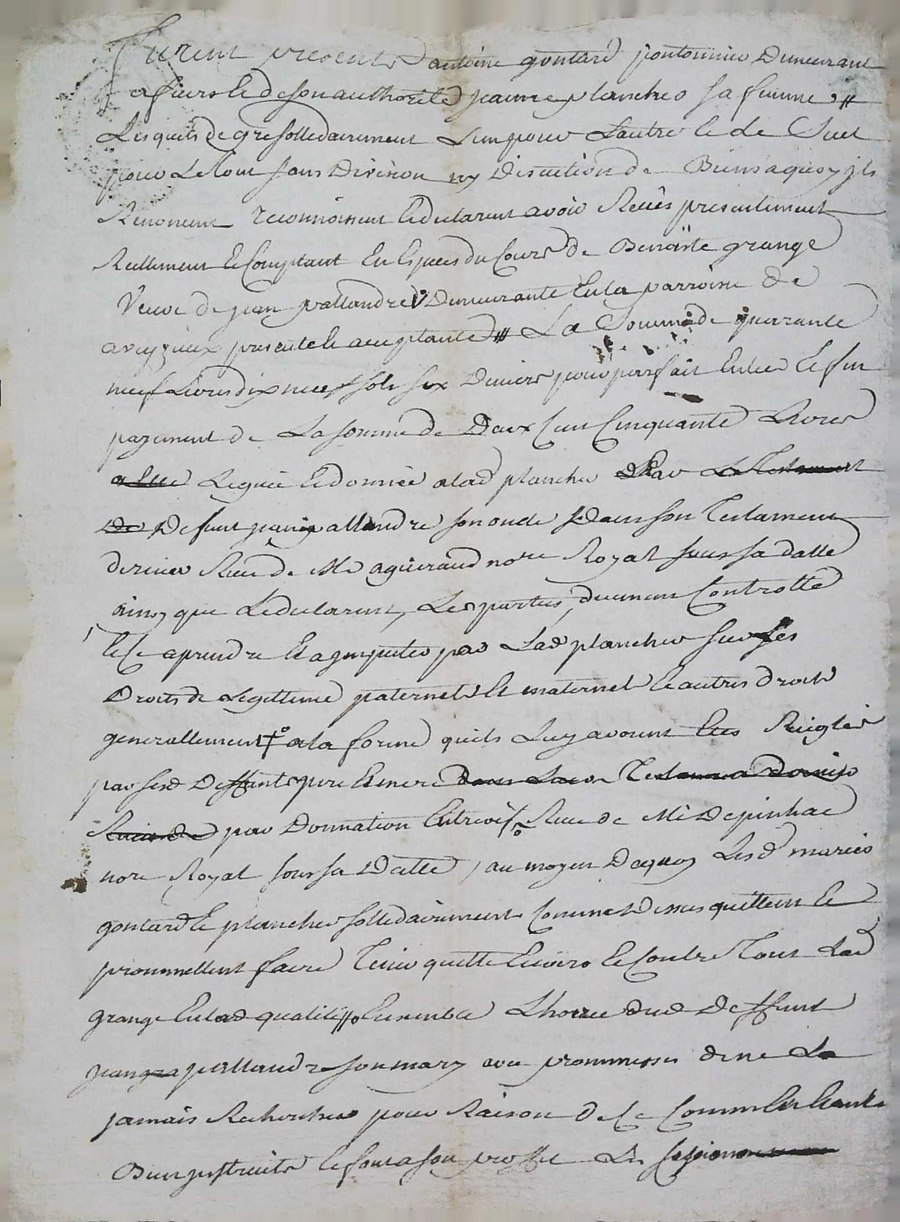 furent presents antoine gontard pontonnier demeurant
a fiers et de son authorité jeanne planches sa femme //
Lesquels de gre sollidairement L'un pour L'autre le De Suel
pour Le tout sans Division ny Discution de Biens aquoy ils
Renoncent reconnoissent et declarent avoir Reçus presentement
Reellement et Comptant En Especes du Cours de Benoiste grange
Veuve de jean pallandre Demeurante En la parroisse de
aveyzieux presente et acceptante // La Somme de quarrante
neuf Livres dix neuf sols six Deniers pour parfait Entier et fin
payement de La somme de Deux Cent Cinquante Livres
a Elle Leguée et donnée a lad planches par Le Testament
De Defunt jean pallandre son oncle Dans son Testament
dernier Reçu de Me aguiraud nore Royal sous sa datte
ainsy que Le declarent Les parties, duement Controllé
et ce a prendre et a imputer par Lad planches sur ses
Droits de Legittime paternel et maternel et autres droits
generallement a la forme quils Luy avoient Etes Reiglés
par sesd Deffunts pere et mere dans Leur Testament dernier
par Donnation Entrevifs Reçue de Me Depinhac
nore Royal sous sa Datte, au moyen Dequoy Lesd mariés
gontard et planches sollidairement Comme Dessus quittent et
prommettent faire Tenir quitte Envers et Contre Tous Lad
grange En lad qualité // L'hoirie dud Deffunt
jean pallandre son mary avec prommesses de ne La
jamais Rechercher pour Raison de Ce Comme Estant
Bien justruits et sous a son proffit